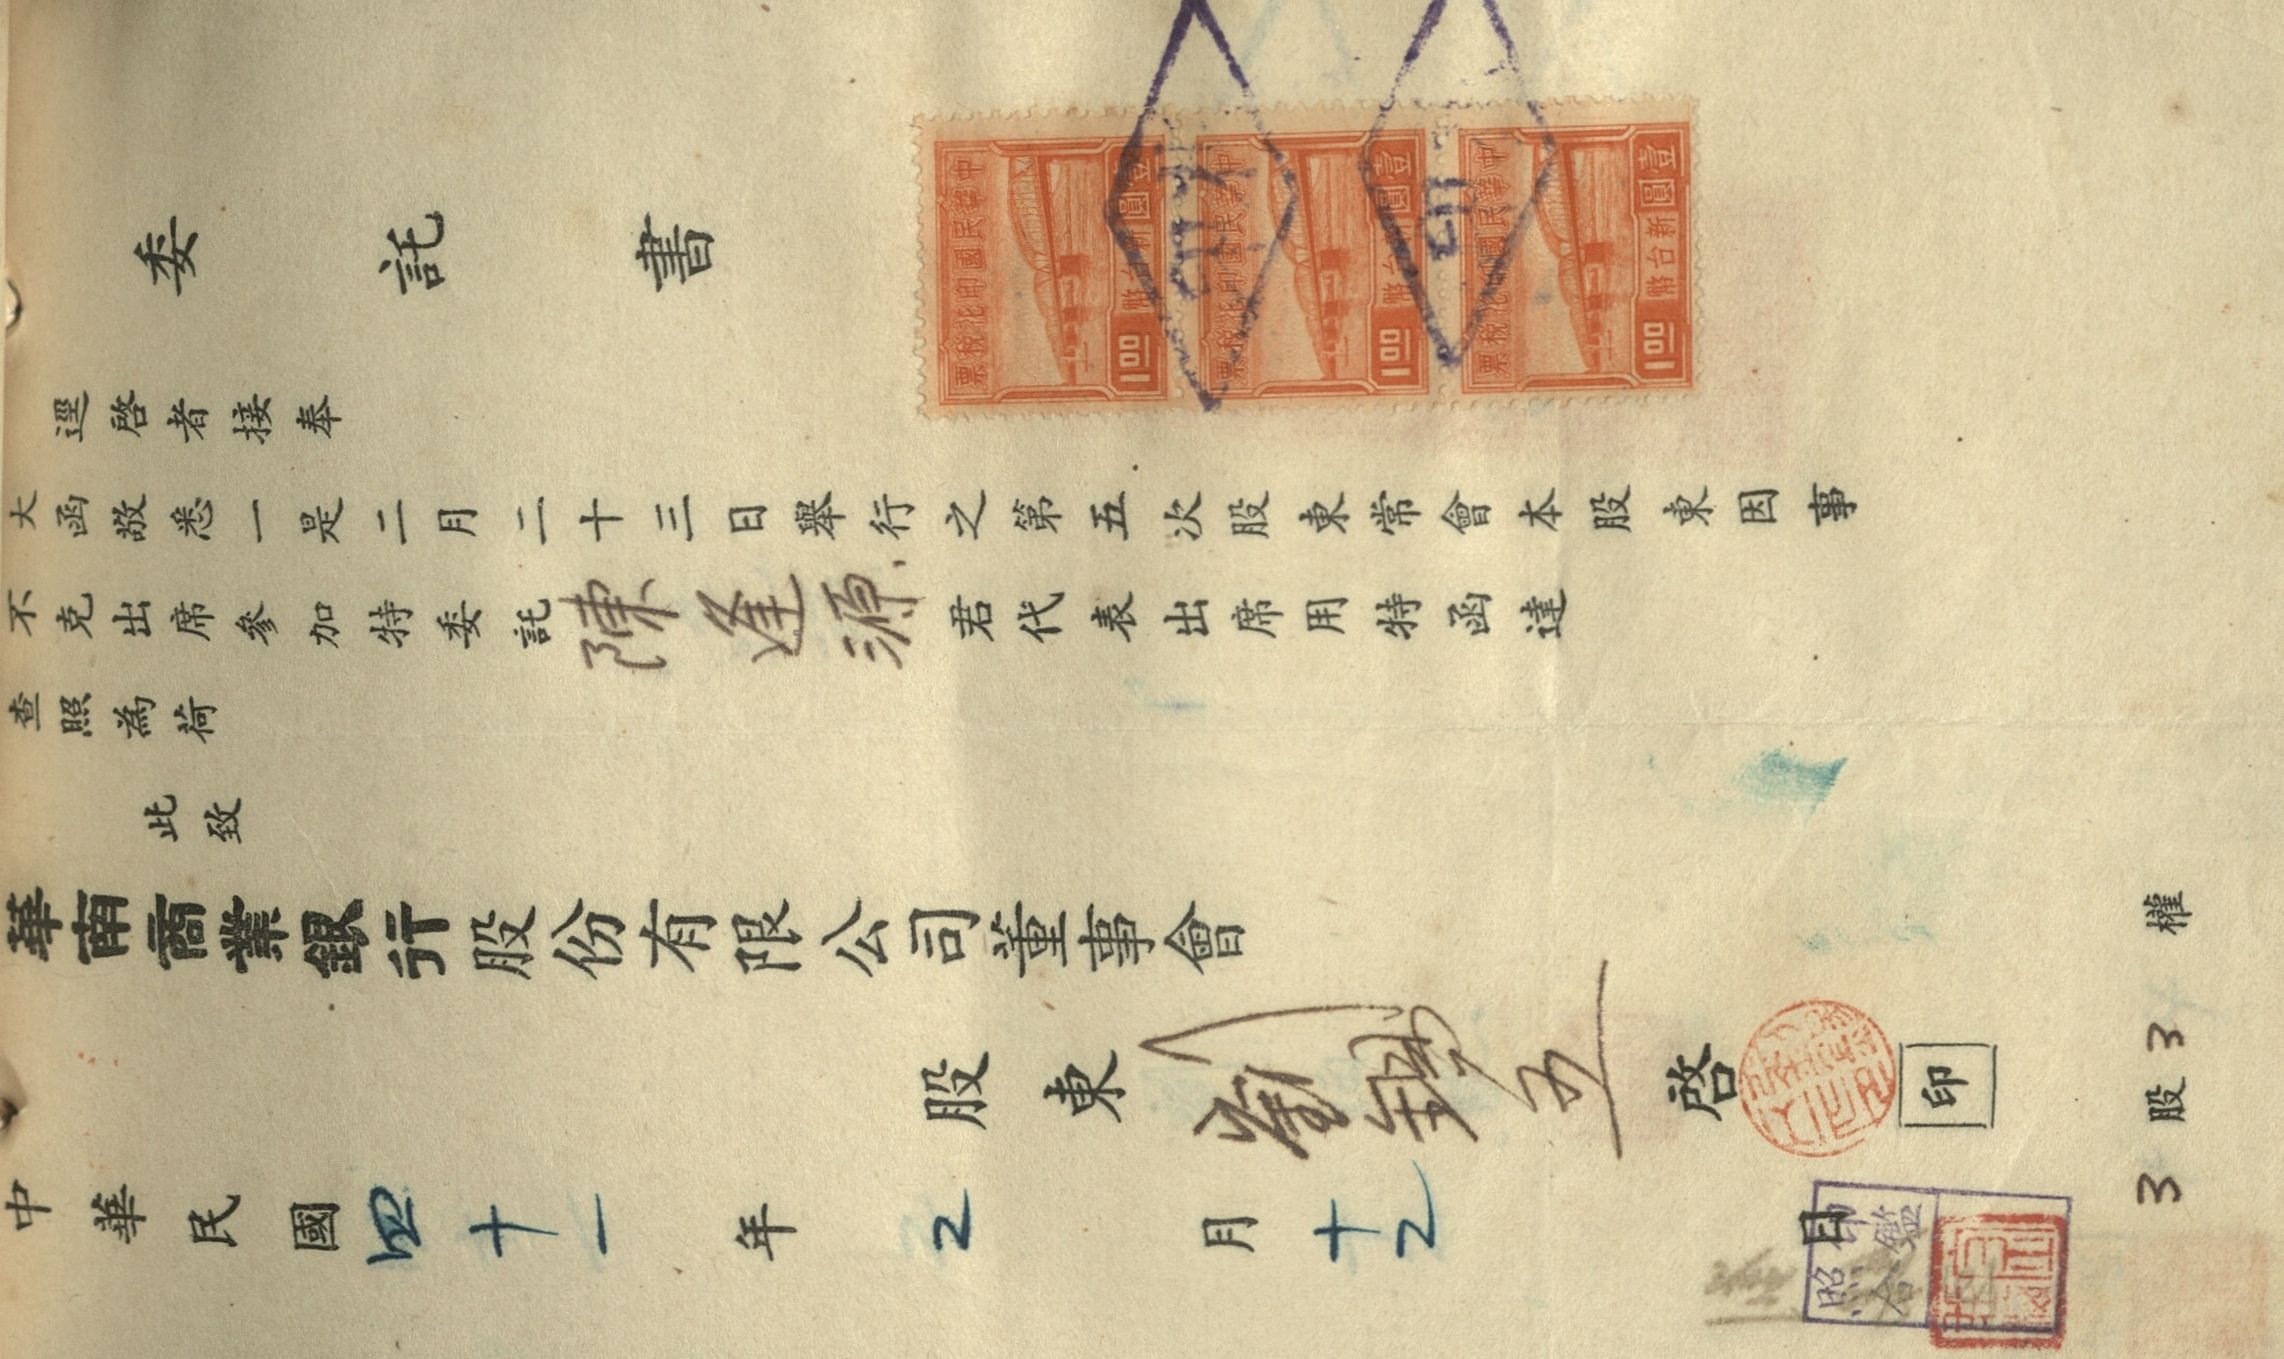 委託書
中華民國印花稅票
新台幣壹圓
1.00
中華民國印花稅票
新台幣壹圓
1.00
中華民國印花稅票
新台幣壹圓
1.00
逕啓者接奉
大函敬悉一是二月二十三日舉行之第五次股東常會本股東因事
不克出席參加特委託陳逢源君代表出席用特函達
查照為荷
此致
華南商業銀行股份有限公司董事會
股東 五 啓 印
中華民國四十一年2月十2日
印鑑照合
3股3權